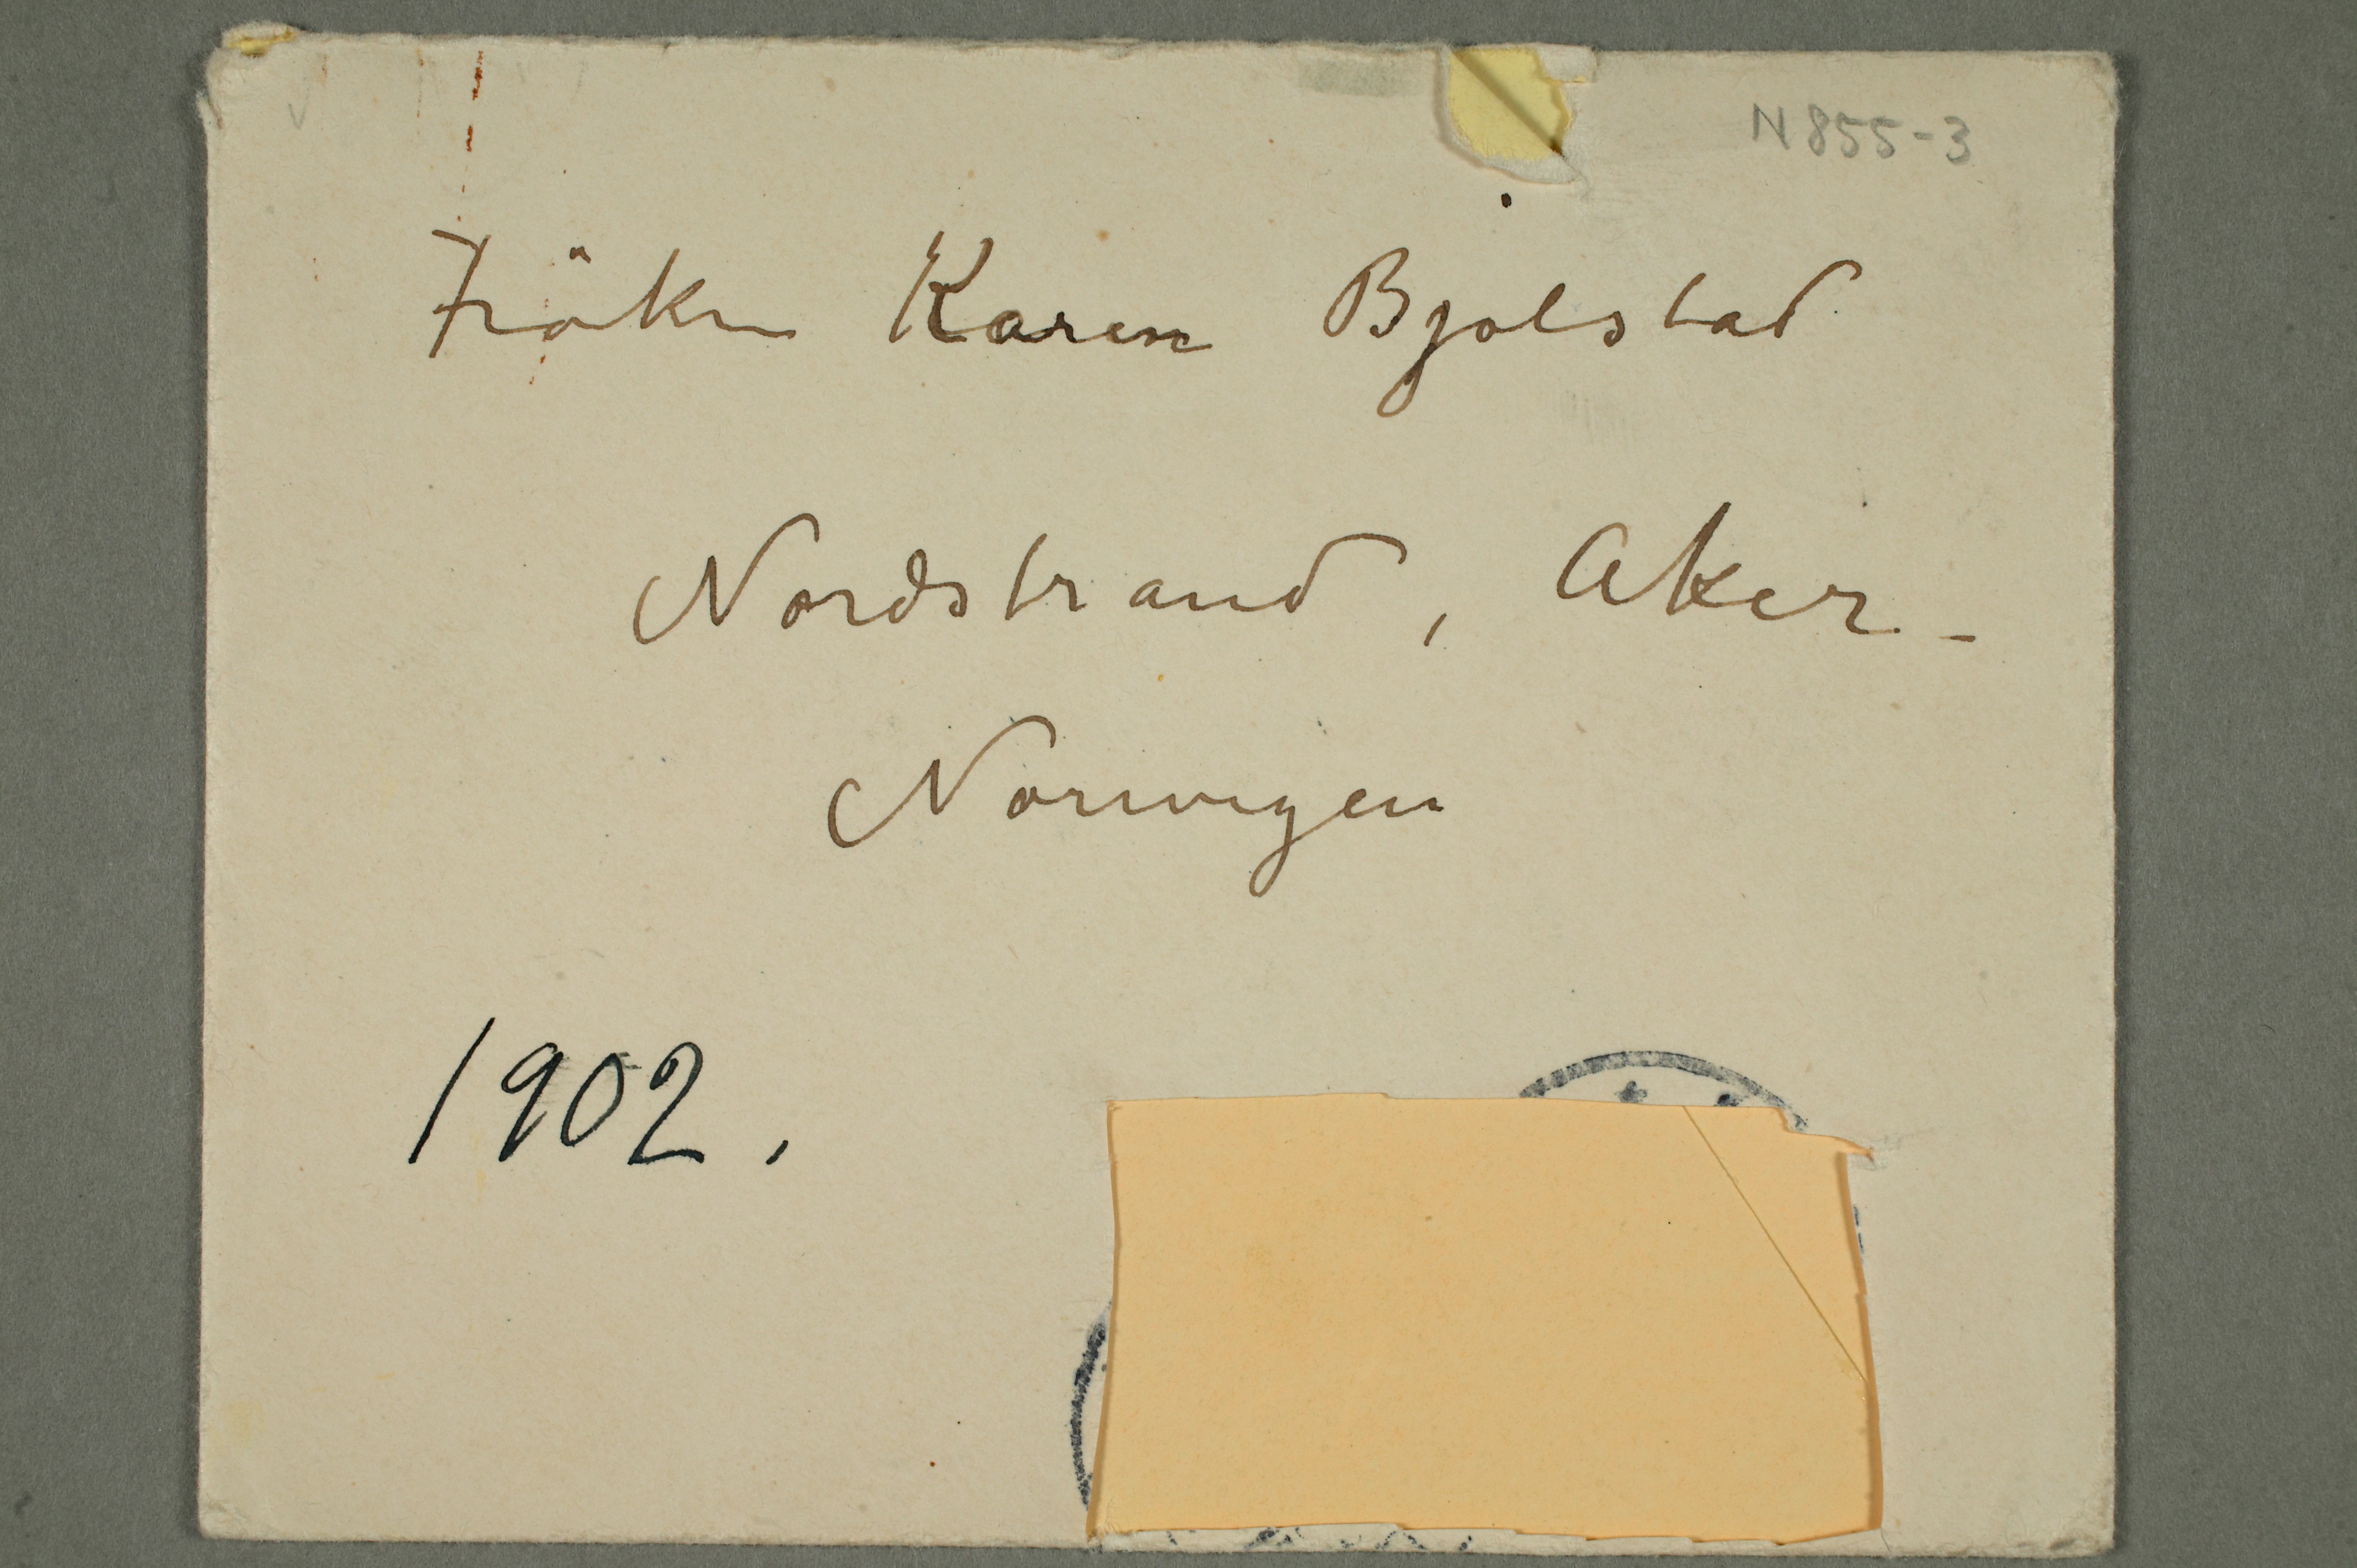 N 855-3
Fröken Karen Bjolstad
Nordstrand, Aker-
Norwegen
1902.